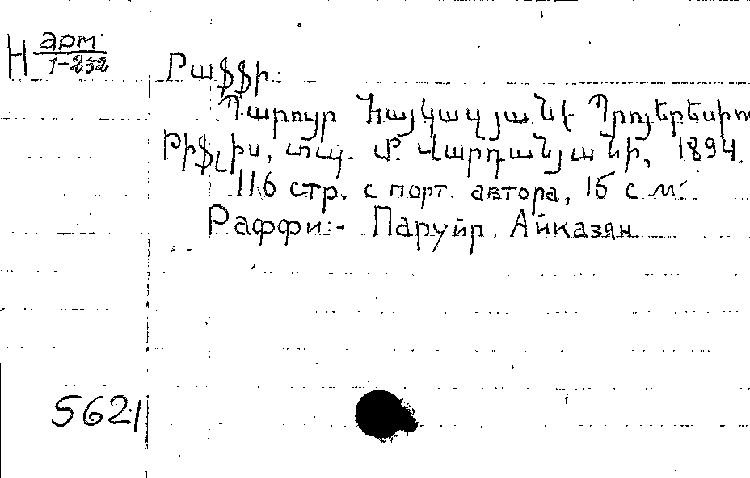 Н арм. 1-232
Րաֆֆի.
Պարույր Հայկազյանէ Պրոյերեսիո
Թիֆլիս, տպ. Մ. Վարդանյանի, 1894.
116 стр. с порт. автора, 15 см.
Раффи.- Паруйр Айказян
5621